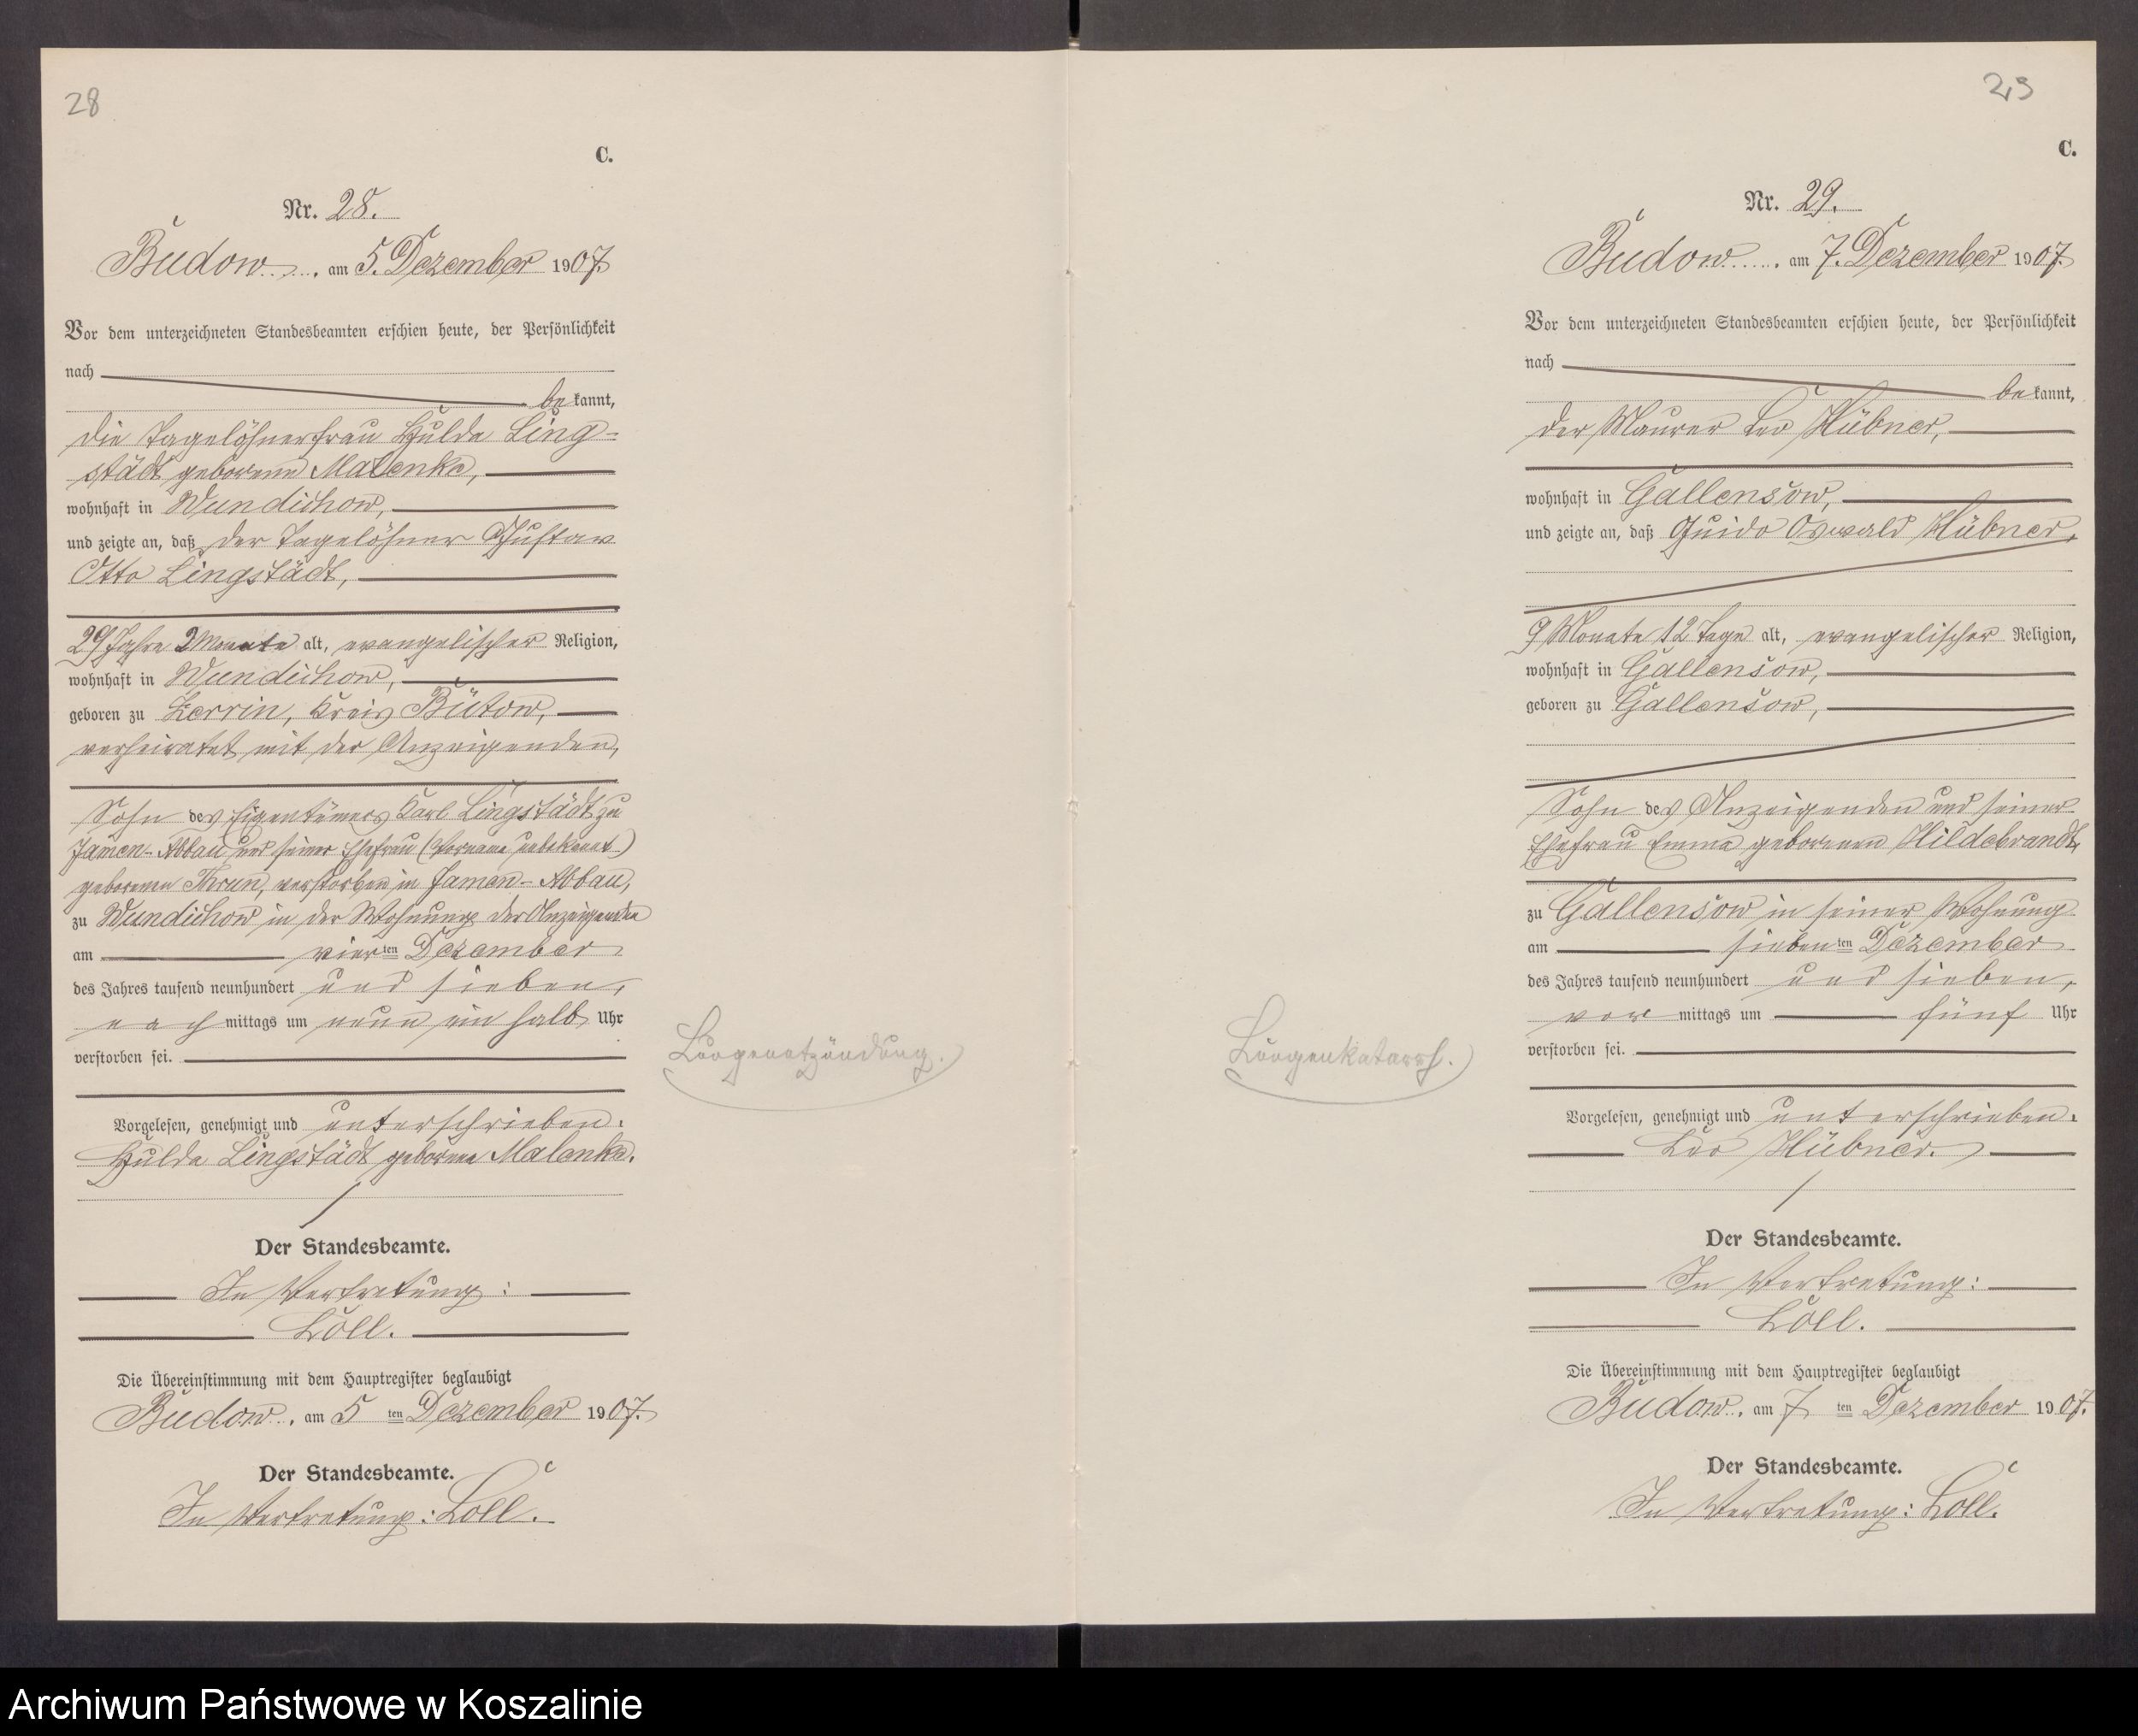 28
C.
Nr. 28.
Budow am 5. Dezember 1907.
Vor dem unterzeichneten Standesbeamten erschien heute, der Persönlichkeit
nach
bekannt,
die Tagelöhnerfrau Hulda Ling-
städt geborene Malenke,
wohnhaft in Wundichow,
und zeigte an, daß der Tagelöhner Gustav
Otto Lingstädt,
29 Jahre 2 Monate alt, evangelischer Religion,
wohnhaft in Wundichow,
geboren zu Zerrin, Kreis Bütow,
verheiratet mit der Anzeigenden,
Sohn des Eigentümers Karl Lingstädt zu
Jamen-Abbau und seiner Ehefrau (Vorname unbekannt)
geborenen Thrun, verstorben in Jamen-Abbau,
zu Wundichow in der Wohnung der Anzeigenden
am vierten Dezember
des Jahres tausend neunhundert und sieben,
nachmittags um neun ein halb Uhr
verstorben sei.
Lungenentzündung.
Vorgelesen, genehmigt und unterschrieben.
Hulda Lingstädt geborene Malenke.
Der Standesbeamte.
In Vertretung:
Loll.
Die Übereinstimmung mit dem Hauptregister beglaubigt
Budow, am 5ten Dezember 1907.
Der Standesbeamte.
In Vertretung: Loll.
29
C.
Nr. 29.
Budow am 7. Dezember 1907.
Vor dem unterzeichneten Standesbeamten erschien heute, der Persönlichkeit
nach
bekannt,
der Maurer Leo Hübner,
wohnhaft in Gallensow,
und zeigte an, daß Guido Oswald Hübner,
9 Monate 12 Tage alt, evangelischer Religion,
wohnhaft in Gallensow,
geboren zu Gallensow,
Sohn des Anzeigenden und seiner
Ehefrau Emma geborenen Hildebrandt,
zu Gallensow in seiner Wohnung
am siebenten Dezember
des Jahres tausend neunhundert und sieben,
vormittags um fünf Uhr
verstorben sei.
Lungenkatarrh.
Vorgelesen, genehmigt und unterschrieben.
Leo Hübner.
Der Standesbeamte.
In Vertretung:
Loll.
Die Übereinstimmung mit dem Hauptregister beglaubigt
Budow, am 7ten Dezember 1907.
Der Standesbeamte.
In Vertretung: Loll.
Archiwum Państwowe w Koszalinie